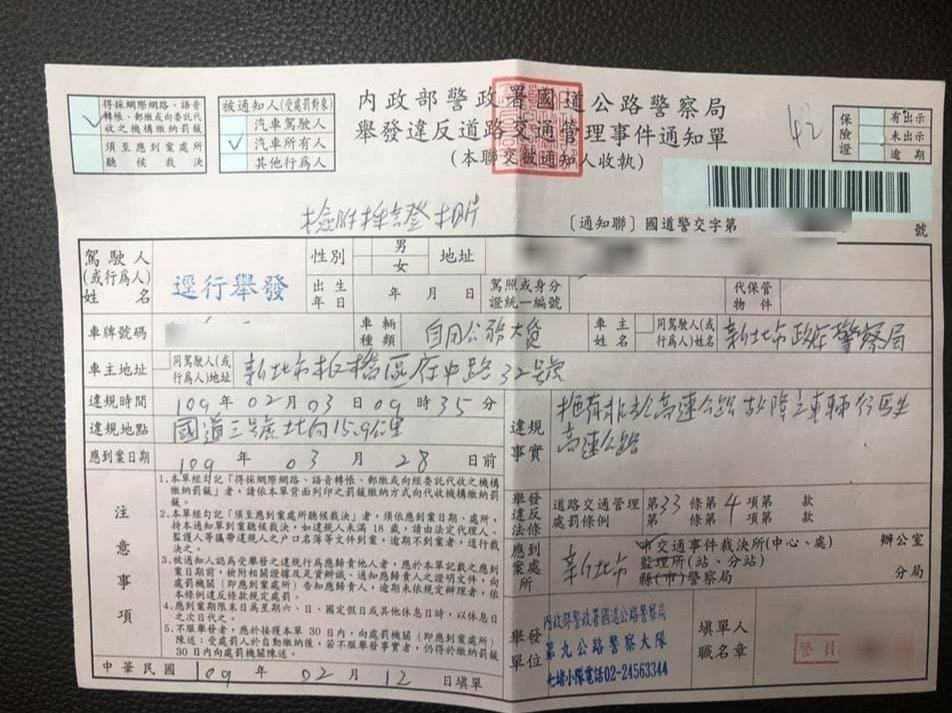 得採網際網路、語音
轉帳、郵繳或向委託代
收之機構繳納罰鍰
須至應到案處所
聽候裁決
被通知人(受處罰對象)
汽車駕駛人
汽車所有人
其他行為人
內政部警政署國道公路警察局
舉發違反道路交通管理事件通知單
(本聯交被通知人收執)
42
保險證
有出示
未出示
逾期
檢附採證照片
〔通知聯〕國道警交字第 號
駕駛人
(或行為人)
姓名
逕行舉發
性別
男
女
地址
出生年日
年 月 日
駕照或身分
證統一編號
代保管
物件
車牌號碼
車輛
種類
自用公務大貨
車主
姓名
同駕駛人(或
行為人)姓名
新北市政府警察局
車主地址
同駕駛人(或
行為人)地址
新北市板橋區府中路32號
違規時間
109年02月03日09時35分
違規地點
國道三號北向15.9公里
應到案日期
109年03月28日前
違規
事實
拖有非於高速公路故障之車輛行駛
高速公路
注意事項
1.本單經勾記「得採網際網路、語音轉帳、郵繳或向經委託代收之機構
繳納罰鍰」者,請依本單背面列印之罰鍰繳納方式向代收機構繳納罰
鍰。
2.本單經勾記「須至應到案處所聽候裁決」者,須依應到案日期、處所,
持本通知單到案聽候裁決,如違規人未滿18歲,請由法定代理人、
監護人等攜帶違規人之戶口名簿等文件到案,逾期不到案者,逕行裁
決之。
3.被通知人認為受舉發之違規行為應歸責他人者,應於本單記載之應到
案日期前,檢附相關證據及足資辨識、通知應歸責人之證明文件,向
處罰機關(即應到案處所)告知應歸責人,逾期未依規定辦理者,依
本條例違反條款規定處罰。
4.應到案期限末日為星期六、日、國定假日或其他休息日時,以休息日
之次日代之。
5.不服舉發者,應於接獲本單30日內,向處罰機關(即應到案處所)
陳述;受處罰人於自動繳納後,若不服舉發事實者,仍得於繳納罰鍰
30日內向處罰機關陳述。
舉發
違反
法條
道路交通管理
處罰條例
第33條第4項第 款
第 條第 項第 款
應到
案處
所
新北市
市交通事件裁決所(中心、處) 辦公室
監理所(站、分站)
縣(市)警察局 分局
舉發
單位
內政部警政署國道公路警察局
第九公路警察大隊
七堵小隊電話02-24563344
填單人
職名章
警員
中華民國109年02月12日填單